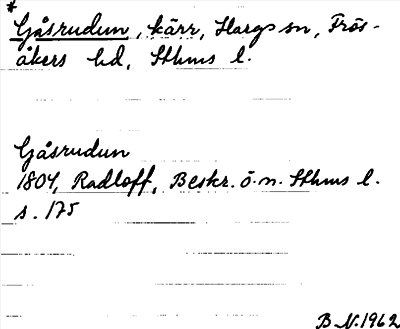 * Gåsrudun, kärr, Hargs sn, Frös-
åkers hd, Sthms l.
Gåsrudun
1804, Radloff, Beskr. ö. n. Sthms l.
s. 175
B.N. 1962